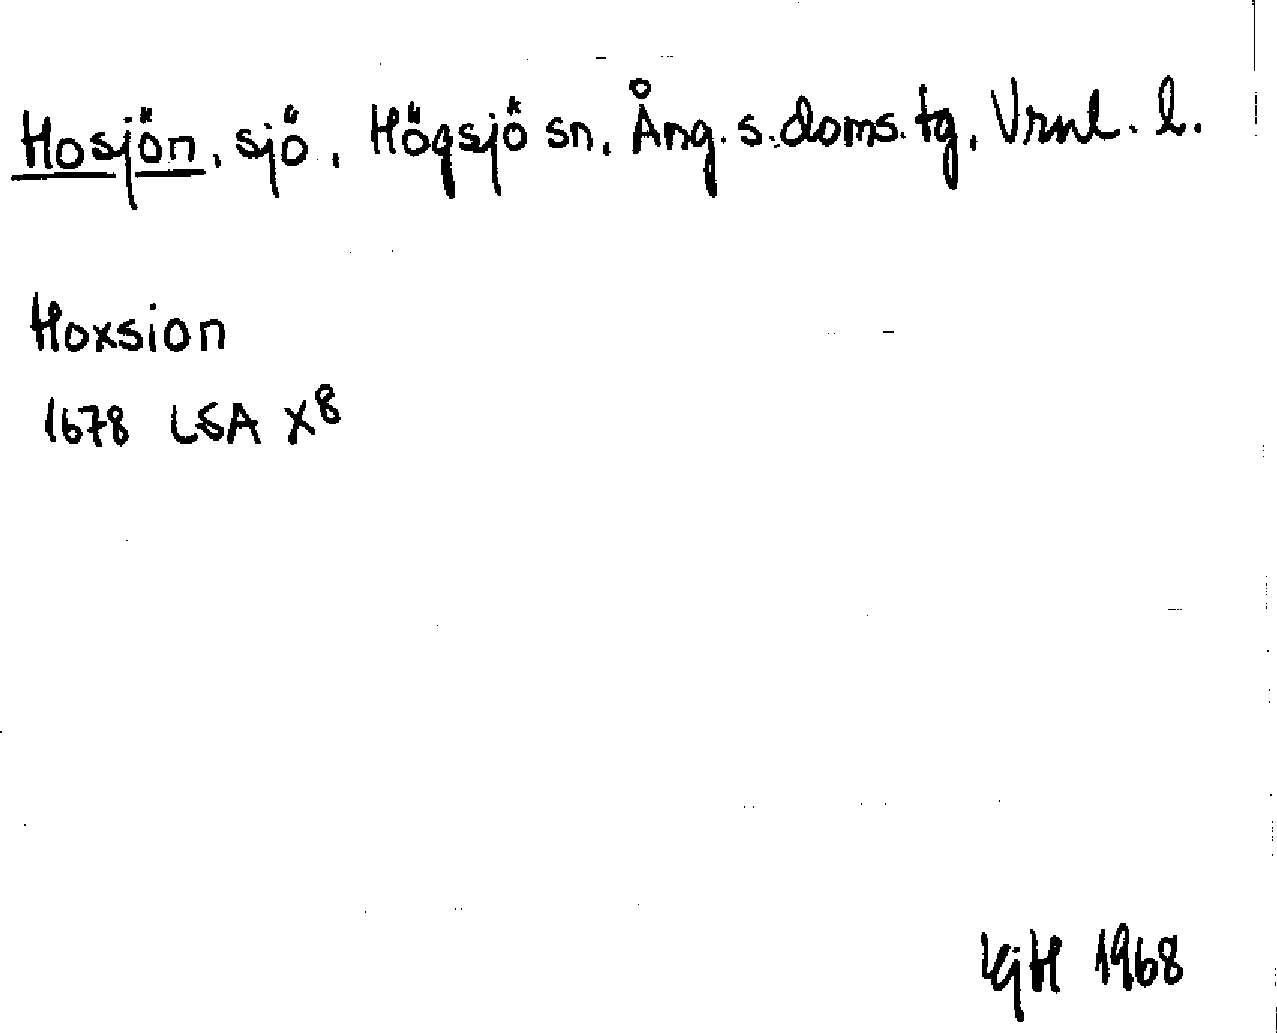 Hosjön, sjö, Högsjö sn, Ång. s. doms. tg, Vrnl. l.
Hoxsion
1678 LSA X8
KjH 1968